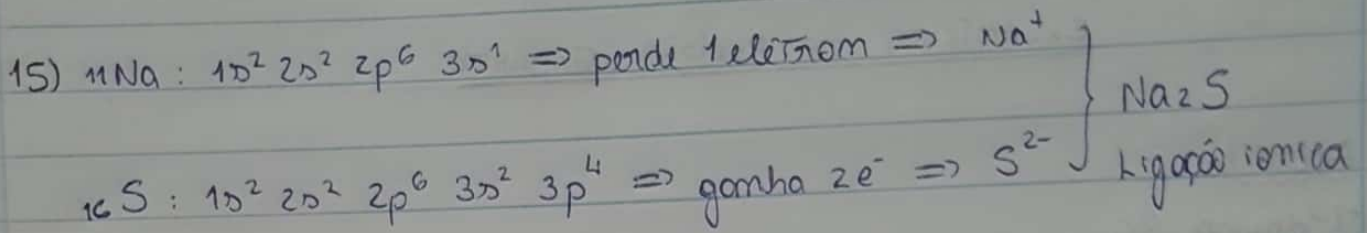 15) 11Na : 1s² 2s² 2p⁶ 3s¹ => perde 1 elétrom => Na⁺
Na2S
16S : 1s² 2s² 2p⁶ 3s² 3p⁴ => gamha 2e⁻ => S²⁻
Ligação iomica